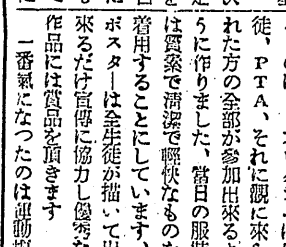 徒、PTA、それに觀に來
れた方の全部が參加出來ると
うに作りました、當日の服裝
は質素で清潔で輕快なものな
着用することにしています、
ポスターは全生徒が描いて出
來るだけ宣傳に協力し優秀な
作品には賞品を頂きます
一番氣になつたのは運動